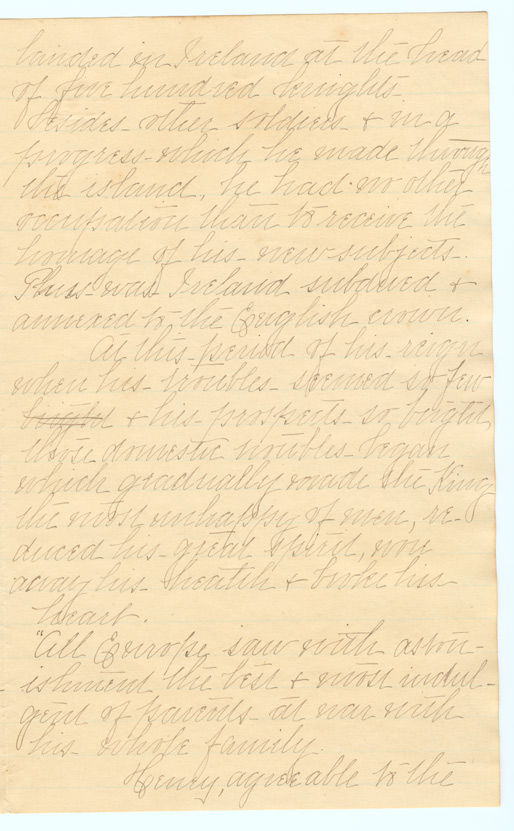 landed in Ireland at the head
of five hundred knights
besides other soldiers & in a
progress which he made through
this island, he had no other
occupation than to receive the
homage of his new subjects.
Thus was Ireland subdued &
annexed to the English crown.
At this period of his reign
when his troubles seemed so few
bright & his prospects so bright,
those domestic troubles began
which gradually made the King
the most unhappy of men, re-
duced his great spirit, wore
away his health & broke his
heart.
"All Europe saw with aston-
ishment the best & most indul-
gent of parents at war with
his whole family.
Henry, agreeable to the